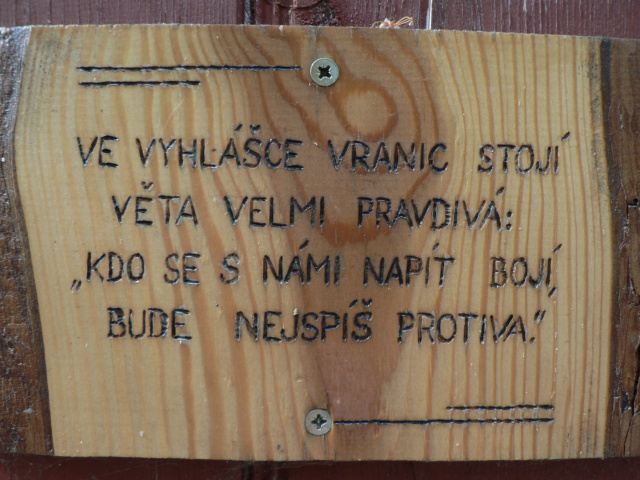 VE VYHLÁŠCE VRANIC STOJÍ
VĚTA VELMI PRAVDIVÁ:
„KDO SE S NÁMI NAPÍT BOJÍ,
BUDE NEJSPÍŠ PROTIVA.“